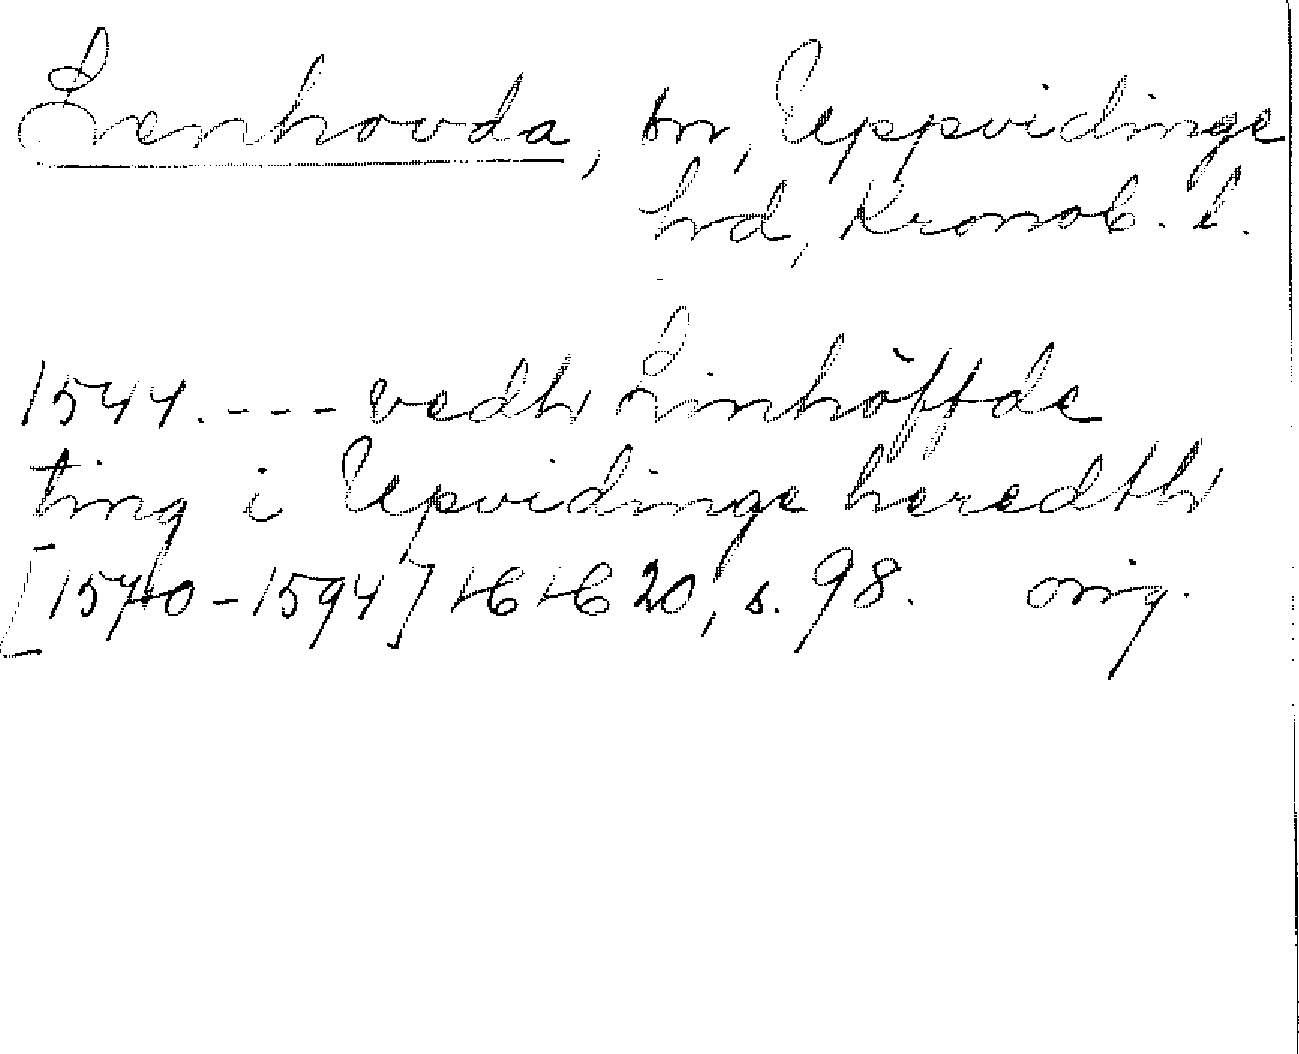 Lenhovda, sn, Uppvidinge
hrd, Kronob. l.
1544. --- vedh Linhöffde
ting i Upvidinge heredth
[1540-1594] HH 20, s. 98. orig.